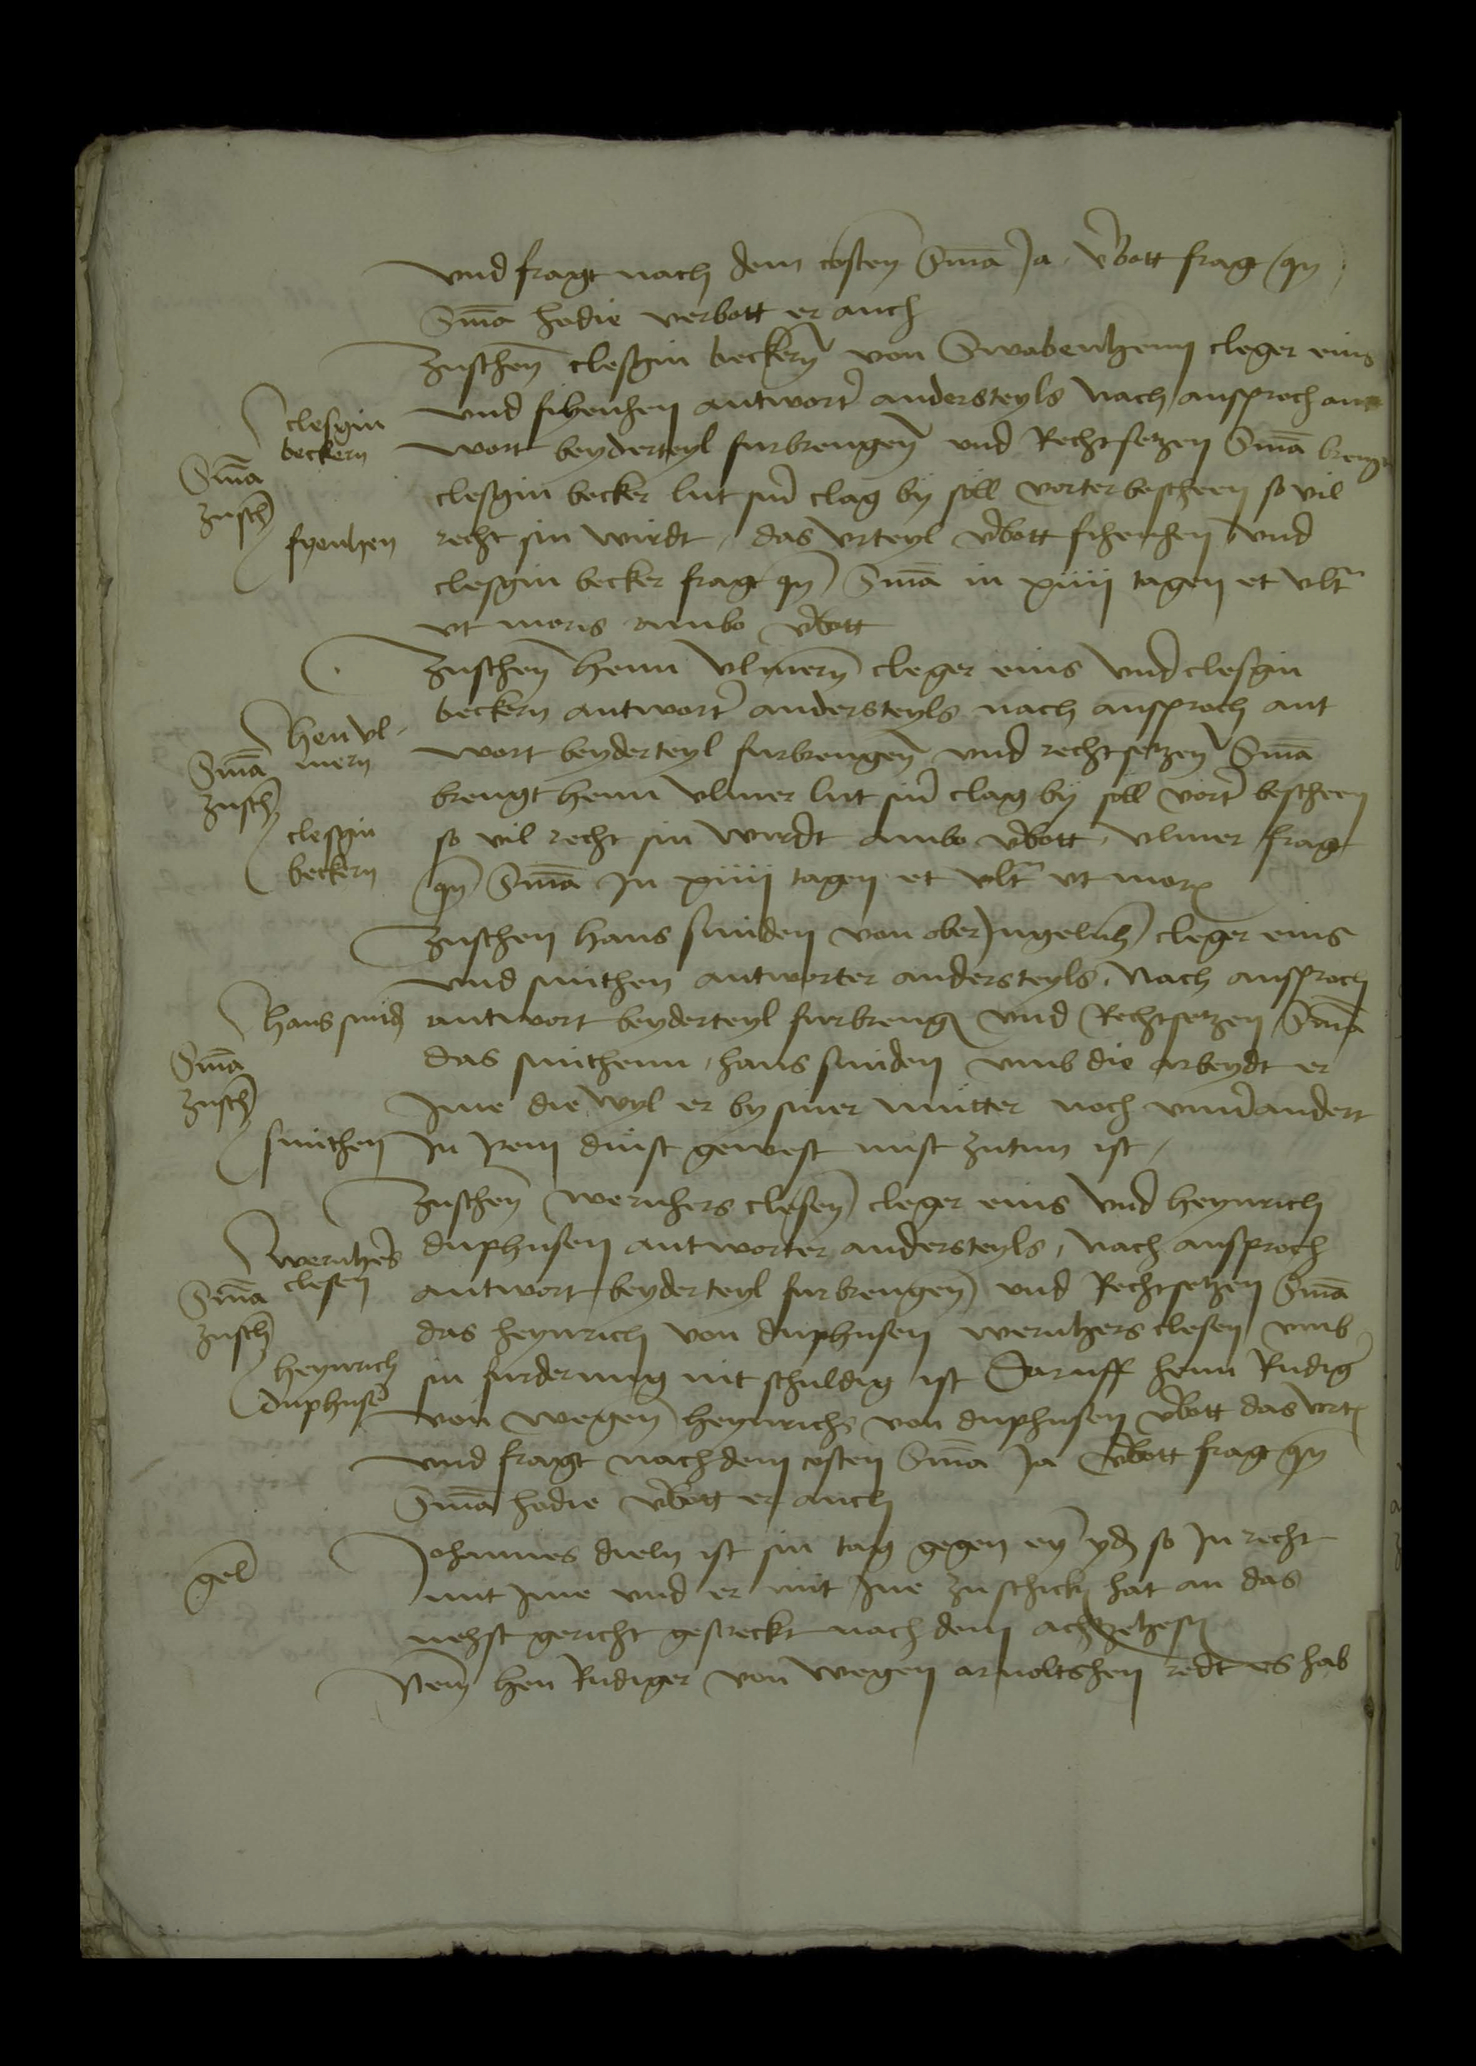 vnd fragt nach dem costen Sma Ja v'bott frag qn
Sma hodie verbott er auch
Zuschen clesgin beckern von Swabenheim cleger eins
vnd fihenhen antwort' andersteyls Nach ansproch ant
wort beyderteyl furbrengen vnd Rechtsetzen Sma brengt
clesgin becker lut sin' clag by soll vorter bescheen so vil
recht sin wirdt / das vrteyl v'bott fihenhen vnd
clesgin becker fragt qn Sma in xiiij tagen et vlt'
vt moris ambo v'bott
clesgin
beckern
Sma
Zusch'
fyenhen
Zuschen henn vlmern cleger eins vnd clesgin
beckern antwort' andersteyls nach ansproch ant
wort beyderteyl furbrengen vnd rechtsetzen Sma
brengt henn vlmer lut sin' clag by soll vort' bescheen
so vil recht sin wirdt ambo v'bott / vlmer fragt
qn Sma In xiiij tagen et vlt' vt mor'
Hen vl-
mern
Sma
Zusch'
clesgin
beckern
Zuschen hans snyden von ober Ingelnh' cleger eins
vnd smthen antworter andersteyls / Nach ansproch
antwort beyderteyl furbreng' vnd Rechtsetzen Sma
das smthenn / hans snyden vmb die arbeydt er
Ime die wyl er by siner mutter noch vnuerandert
In Irem dinst gewest nust zutun ist /
Hans snid'
Sma
Zusch'
smthen
Zuschen wernhers clesen cleger eins vnd heynrich
duphusen antworter andersteyls / nach ansproch
antwort beyderteyl furbrengen vnd Rechtsetzen Sma
das heynrich von duphusen wernhers clesen vmb
sin furderung nit schuldig ist Daruff henn Rudig'
von wegen heynrichs von duphusen v'bott das vrt'
vnd fragt nach dem costen Sma Ja v'bott frag qn
Sma hodie v'bott er auch
wernher's
clesen
Sma
Zusch'
heynrich
duphuse'
Johannes dieln ist sin tag gegen eyn yd' so In recht
mit Ime vnd er mit Ime zu schick' hat an das
nehst gericht gestreckt nach dem achtzehesten
gel'
Item hen Rudiger von wegen arnoltshen redt es hab